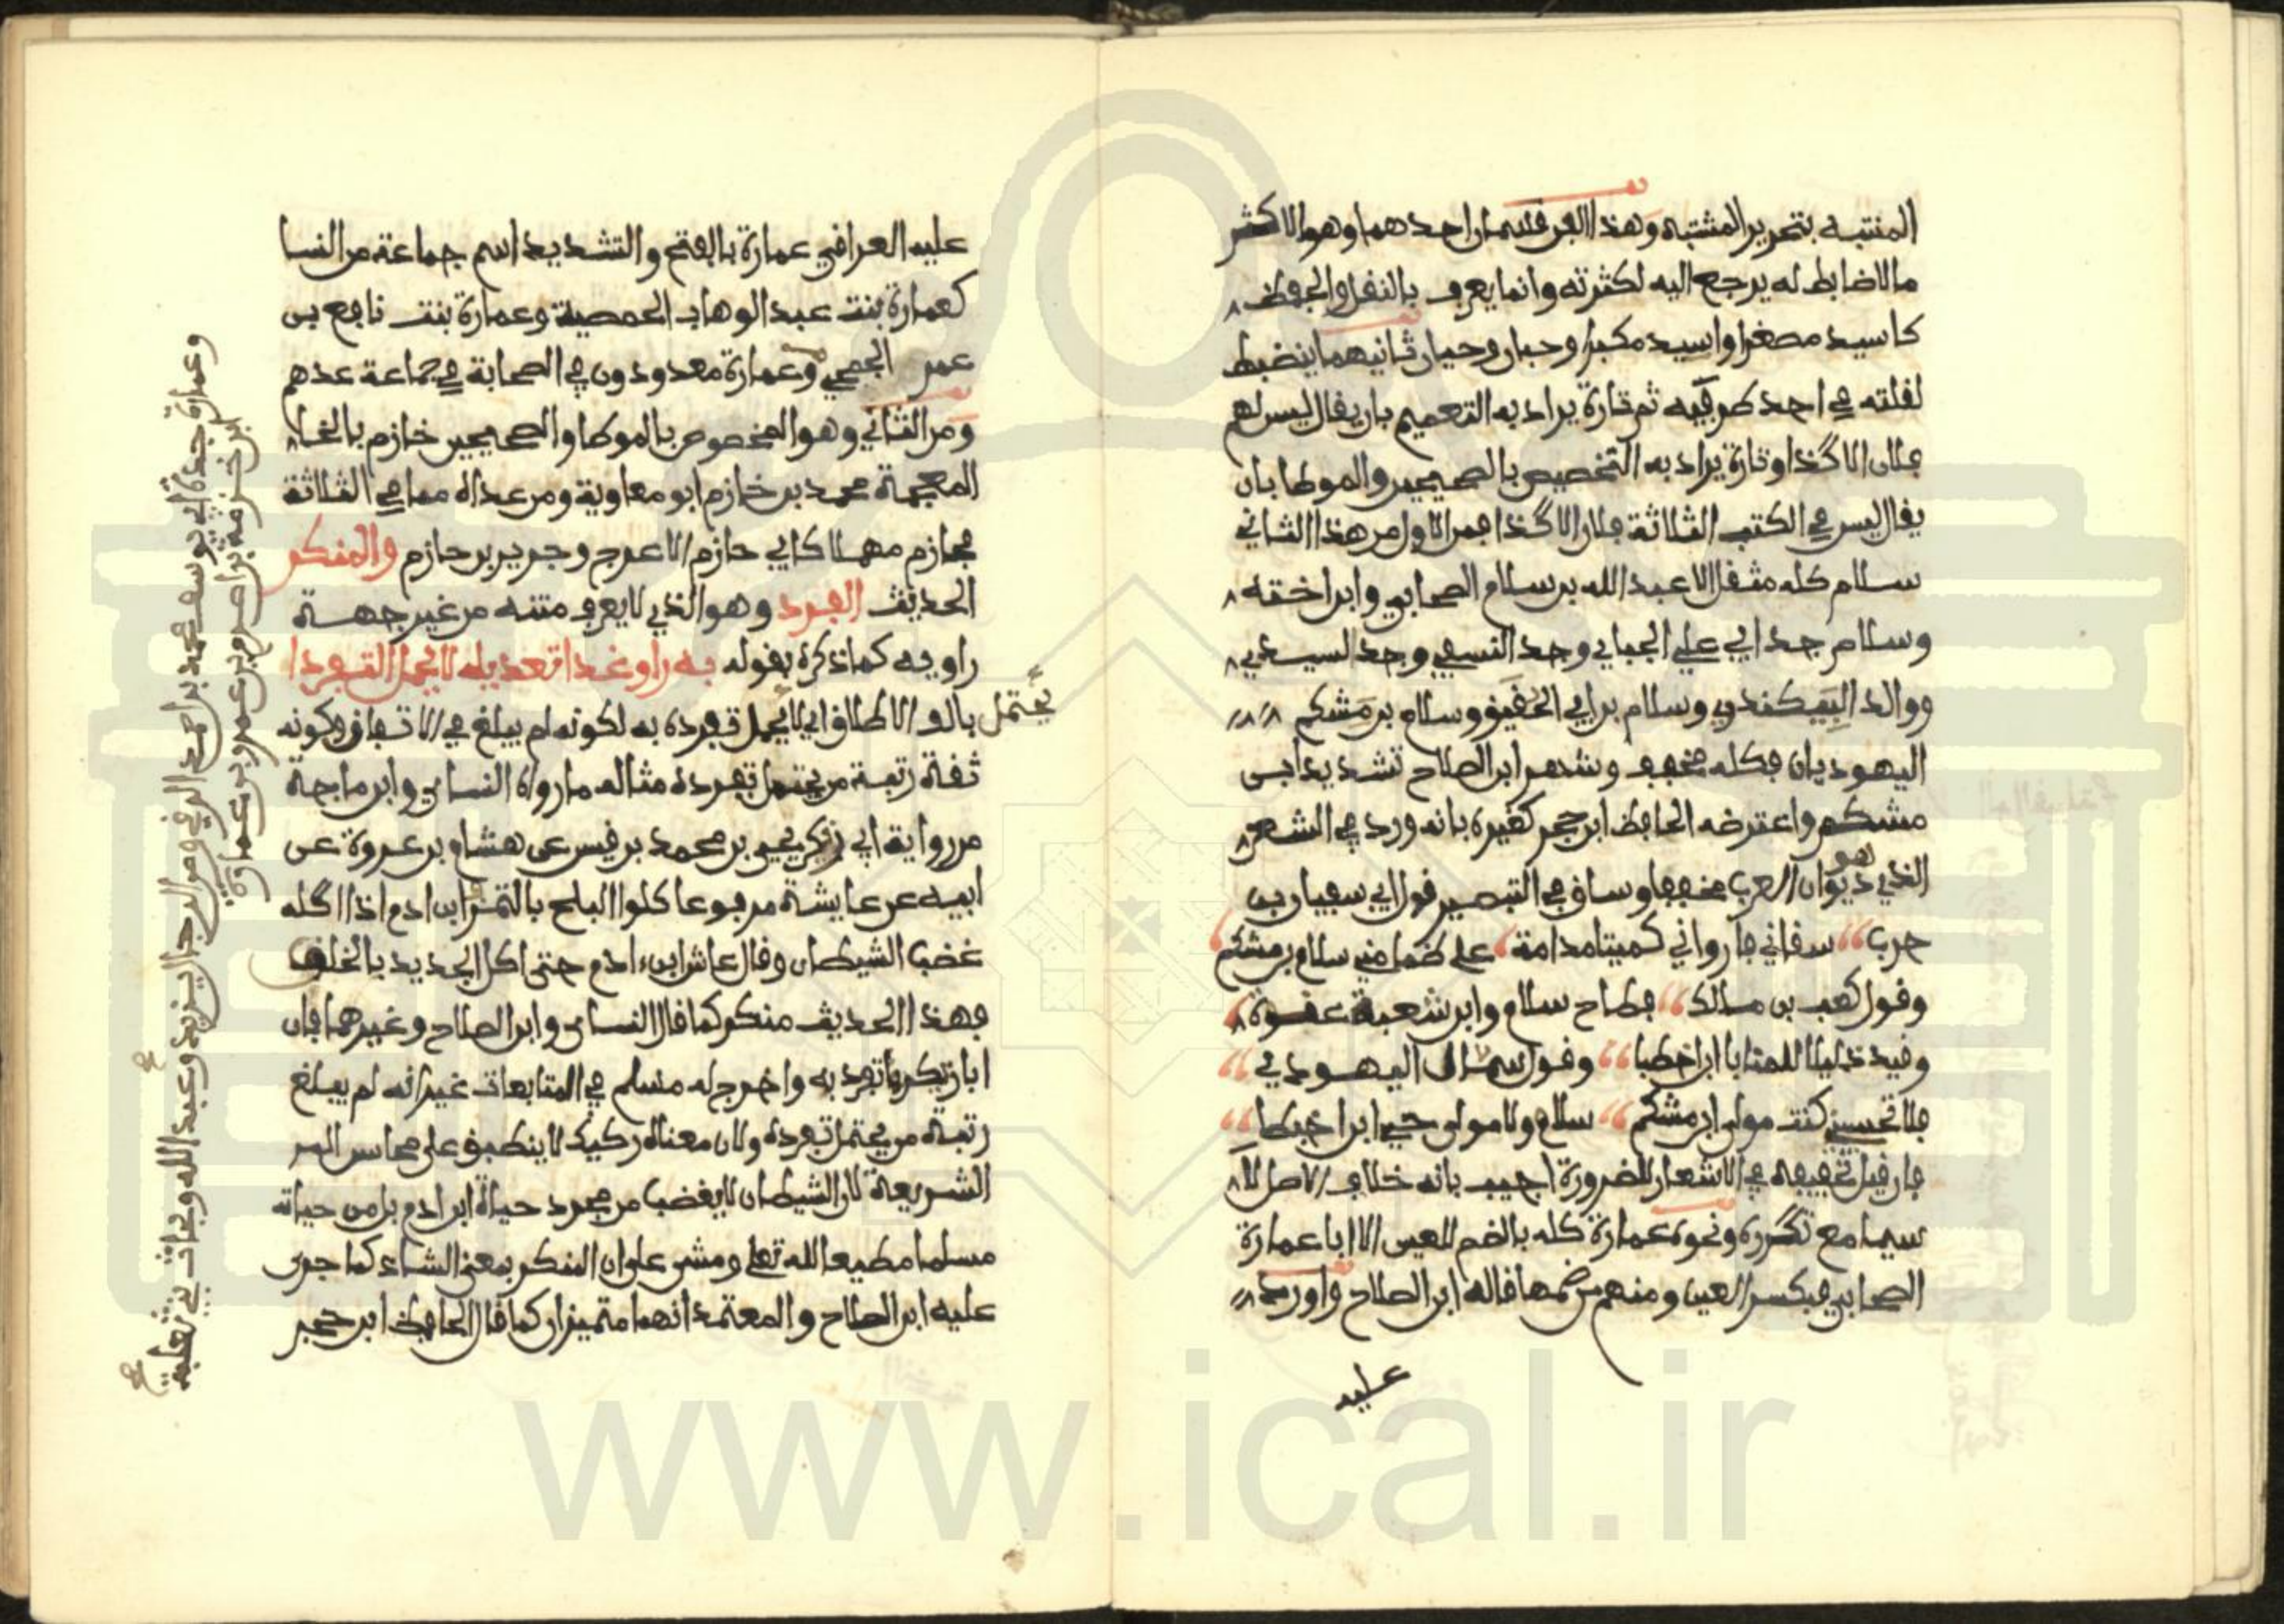 المنتبه بتحرير المشتبه وهذا الفن قسمان احدهما وهو الاكثر
ما لا ضابط له يرجع اليه لكثرته وانما يعرف بالنقل والحفظ
كاسيد مصغرا واسيد مكبرا وحبان وحيان ثانيهما ينضبط
لقلته في احد طرفيه ثم تارة يراد به التعميم بان يقال ليس لهم
فلان الا كذا وتارة يراد به التخصيص بالصحيحين والموطا بان
يقال ليس في الكتب الثلاثة فلان الا كذا فمن الاول من هذا الثاني
سلام كله مثقل الا عبد الله بن سلام الصحابي وابن اخته
وسلام جد ابي علي الجبايي وجد النسفي وجد السيدي
ووالد البيكندي وسلام بن ابي الحقيق وسلام بن مشكم
اليهوديان فكله مخفف وشهر ابن الصلاح تشديد ابن
مشكم واعترضه الحافظ ابن حجر كغيره بانه ورد في الشعر
الذي هو ديوان العرب مخففا وساق في التبصير قول ابي سفيان بن
حرب سقاني فارواني كميتا مدامة على ظما مني سلام بن مشكم
وقول كعب بن مالك فطاح سلام وابن شعبة عنوة
وقيد ذليلا للمنايا ابن اخطبا وقول سماك اليهودي
فلا تحسبني كنت مولى ابن مشكم سلام ولا مولى حيي ابن اخطبا
فان قيل تخفيفه في الاشعار للضرورة اجيب بانه خلاف الاصل لا
سيما مع تكرره ونحوه عمارة كله بالضم للعين الا ابا عمارة
الصحابي فبكسر العين ومنهم من ضمها قاله ابن الصلاح واورد
عليه
عليه العراقي عمارة بالفتح والتشديد اسم جماعة من النسا
كعمارة بنت عبد الوهاب الحمصية وعمارة بنت نافع بن
عمر الجمحي وعمارة معدودون في الصحابة في جماعة عدهم
ومن الثاني وهو المخصوص بالموطا والصحيحين خازم بالخا
المعجمة محمد بن خازم ابو معاوية ومن عداه مما في الثلاثة
فحازم مهملا كابي حازم الاعرج وجرير بن حازم والمنكر
الحديث الفرد وهو الذي لا يعرف متنه من غير جهة
راويه كما ذكره بقوله به راو غدا تعديله لا يحمل التفردا
يحتمل
بالف الاطلاق اي لا يحمل تفرده به لكونه لم يبلغ في الاتقان وكونه
ثقة رتبة من يحتمل تفرده مثاله ما رواه النساي وابن ماجة
من رواية ابي زكير يحيى بن محمد بن قيس عن هشام بن عروة عن
ابيه عن عايشة مرفوعا كلوا البلح بالتمر ابن ادم اذا اكله
غضب الشيطان وقال عاش ابن ادم حتى اكل الجديد بالخلق
فهذا الحديث منكر كما قال النساي وابن الصلاح وغيرهما فان
ابا زكير تفرد به واخرج له مسلم في المتابعات غير انه لم يبلغ
رتبة من يحتمل تفرده ولان معناه ركيك لا ينطبق على محاسن
الشريعة لان الشيطان لا يغضب من مجرد حياة ابن ادم بل من حياته
مسلما مطيعا لله تعلى ومشى على ان المنكر بمعنى الشاذ كما جرى
عليه ابن الصلاح والمعتمد انهما متميزان كما قال الحافظ ابن حجر
وعمارة جدة ابي يوسف محمد بن احمد الرقي ومن الرجال يزيد وعبد الله وبحاث بني ثعلبة
ابن خزمة بن اصرم بن عمرو بن عمارة